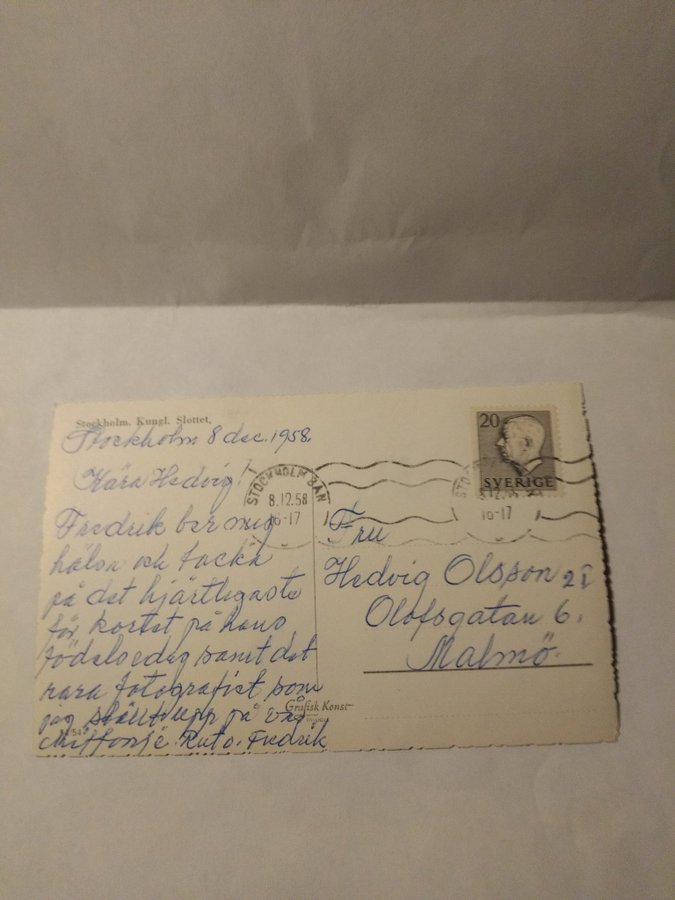 Stockholm. Kungl. Slottet.
Stockholm 8 dec. 1958.
Kära Hedvig!
Fredrik ber mig
hälsa och tacka
på det hjärtligaste
för kortet på hans
födelsedag samt det
rara fotografiet som
jag ställt upp på vår
chiffonjé. Rut o. Fredrik
20
SVERIGE
STOCKHOLM BAN
8.12.58
16-17
16-17
Fru
Hedvig Olsson
Olofsgatan 6.
Malmö.
Grafisk Konst